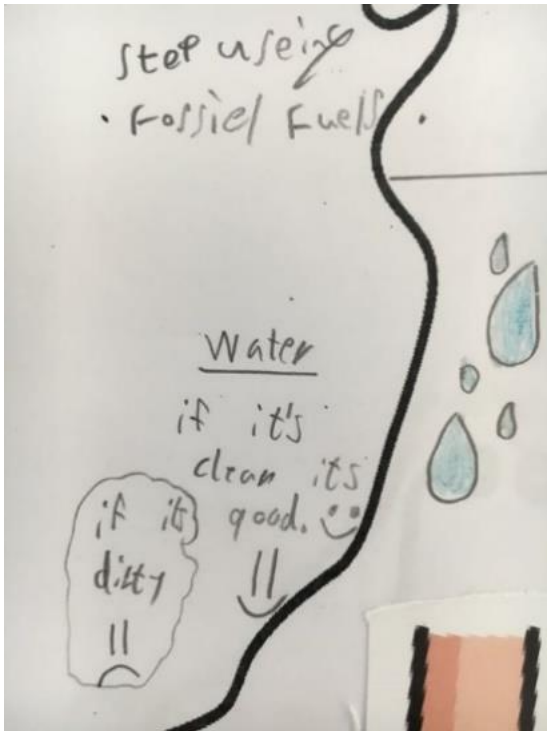 Stop useing
. Fossiel Fuells .
Water
if it's
clean it's
good.
if its
dirty